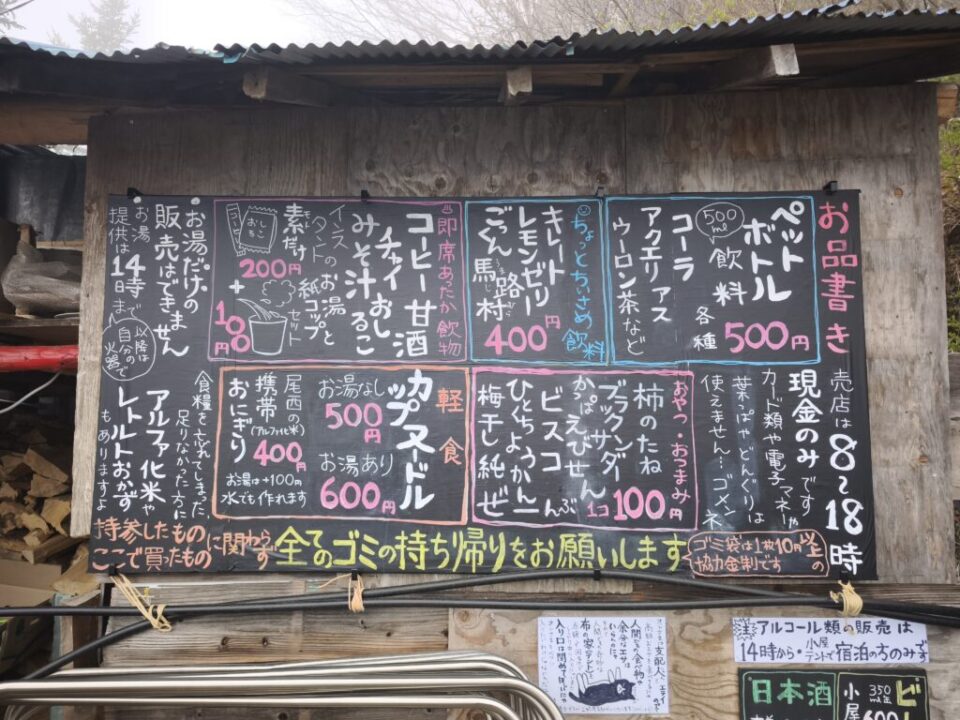 お品書き
売店は8〜18時
現金のみです
カード類や電子マネーや
葉っぱやどんぐりは
使えません…ゴメンネ
ペットボトル
500ml
飲料
各種
500円
コーラ
アクエリアス
ウーロン茶など
ちょっとちいさめ飲料
キレートレモンゼリー
ごっくん馬路村
400円
即席あったか飲物
コーヒー 甘酒
チャイ おしるこ
みそ汁
インスタントの素だけ
200円
お湯と紙コップセット
+100円
おしるこ
お湯だけの
販売はできません
お湯提供は14時まで
以降は自分の火器で
おやつ・おつまみ
柿のたね
ブラックサンダー
かっぱえびせん
ビスコ
ひとくちようかん
梅干し純 ぜんぶ
1コ100円
軽食
カップヌードル
お湯なし
500円
お湯あり
600円
尾西の携帯おにぎり
(アルファ化米)
400円
お湯は+100円
水でも作れます
食糧を忘れてしまった、
足りなかった方に
アルファ化米や
レトルトおかず
もありますよ
持参したもの
ここで買ったもの
に関わらず
全てのゴミの持ち帰りをお願いします
ゴミ袋は1枚10円以上の
協力金制です
アルコール類の販売は
14時から・小屋テントで宿泊の方のみです
人間の食べ物や
余分なエサは
いらんのに。
布の家(テント)
入り口は閉めて
日本酒
小屋
350ml缶
ビ
600